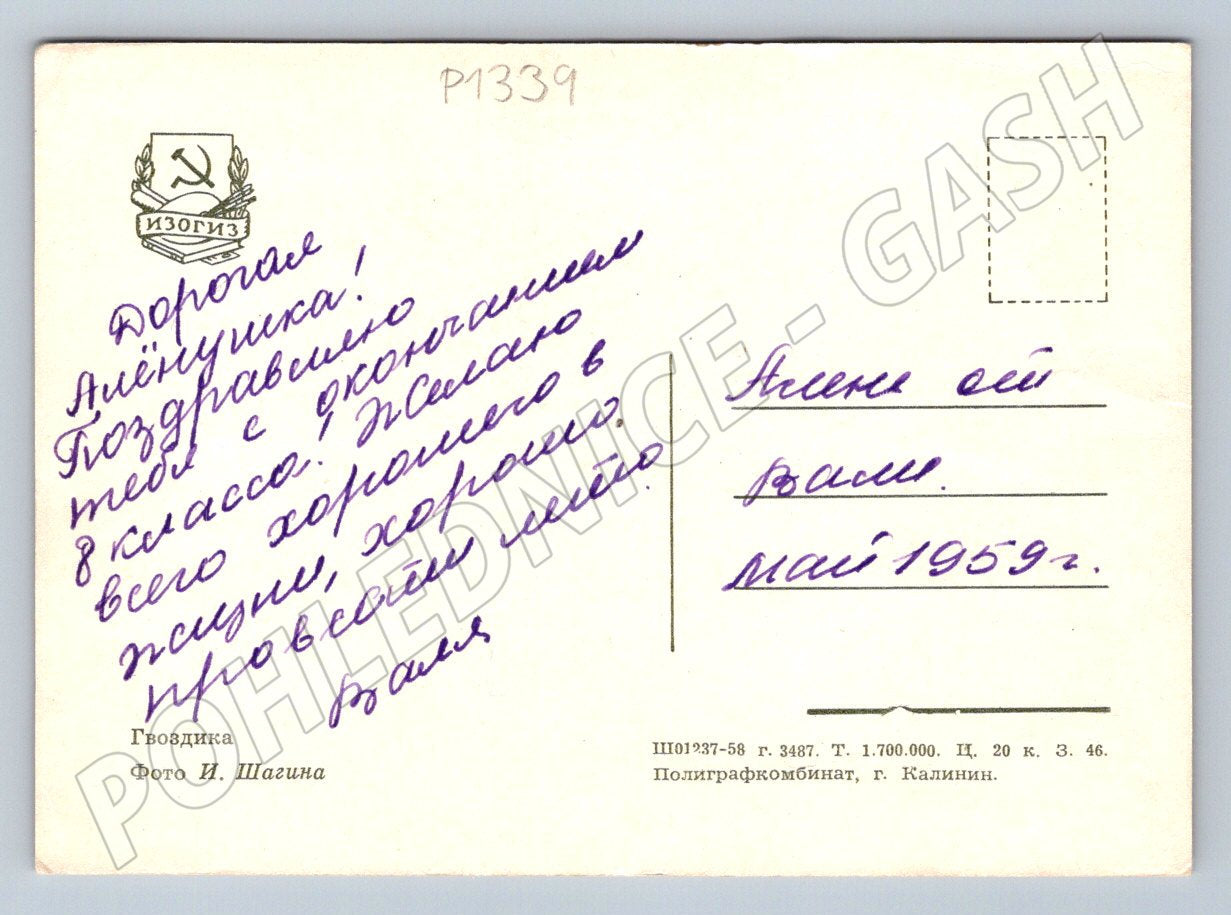 P1339
ИЗОГИЗ
Дорогая
Алёнушка!
Поздравляю
тебя с окончанием
8 класса! Желаю
всего хорошего в
жизни, хорошо
провести лето.
Валя
Алене от
Вали.
май 1959 г.
Гвоздика
Фото И. Шагина
Ш01237-58 г. 3487. Т. 1.700.000. Ц. 20 к. З. 46.
Полиграфкомбинат, г. Калинин.
POHLEDNICE - GASH